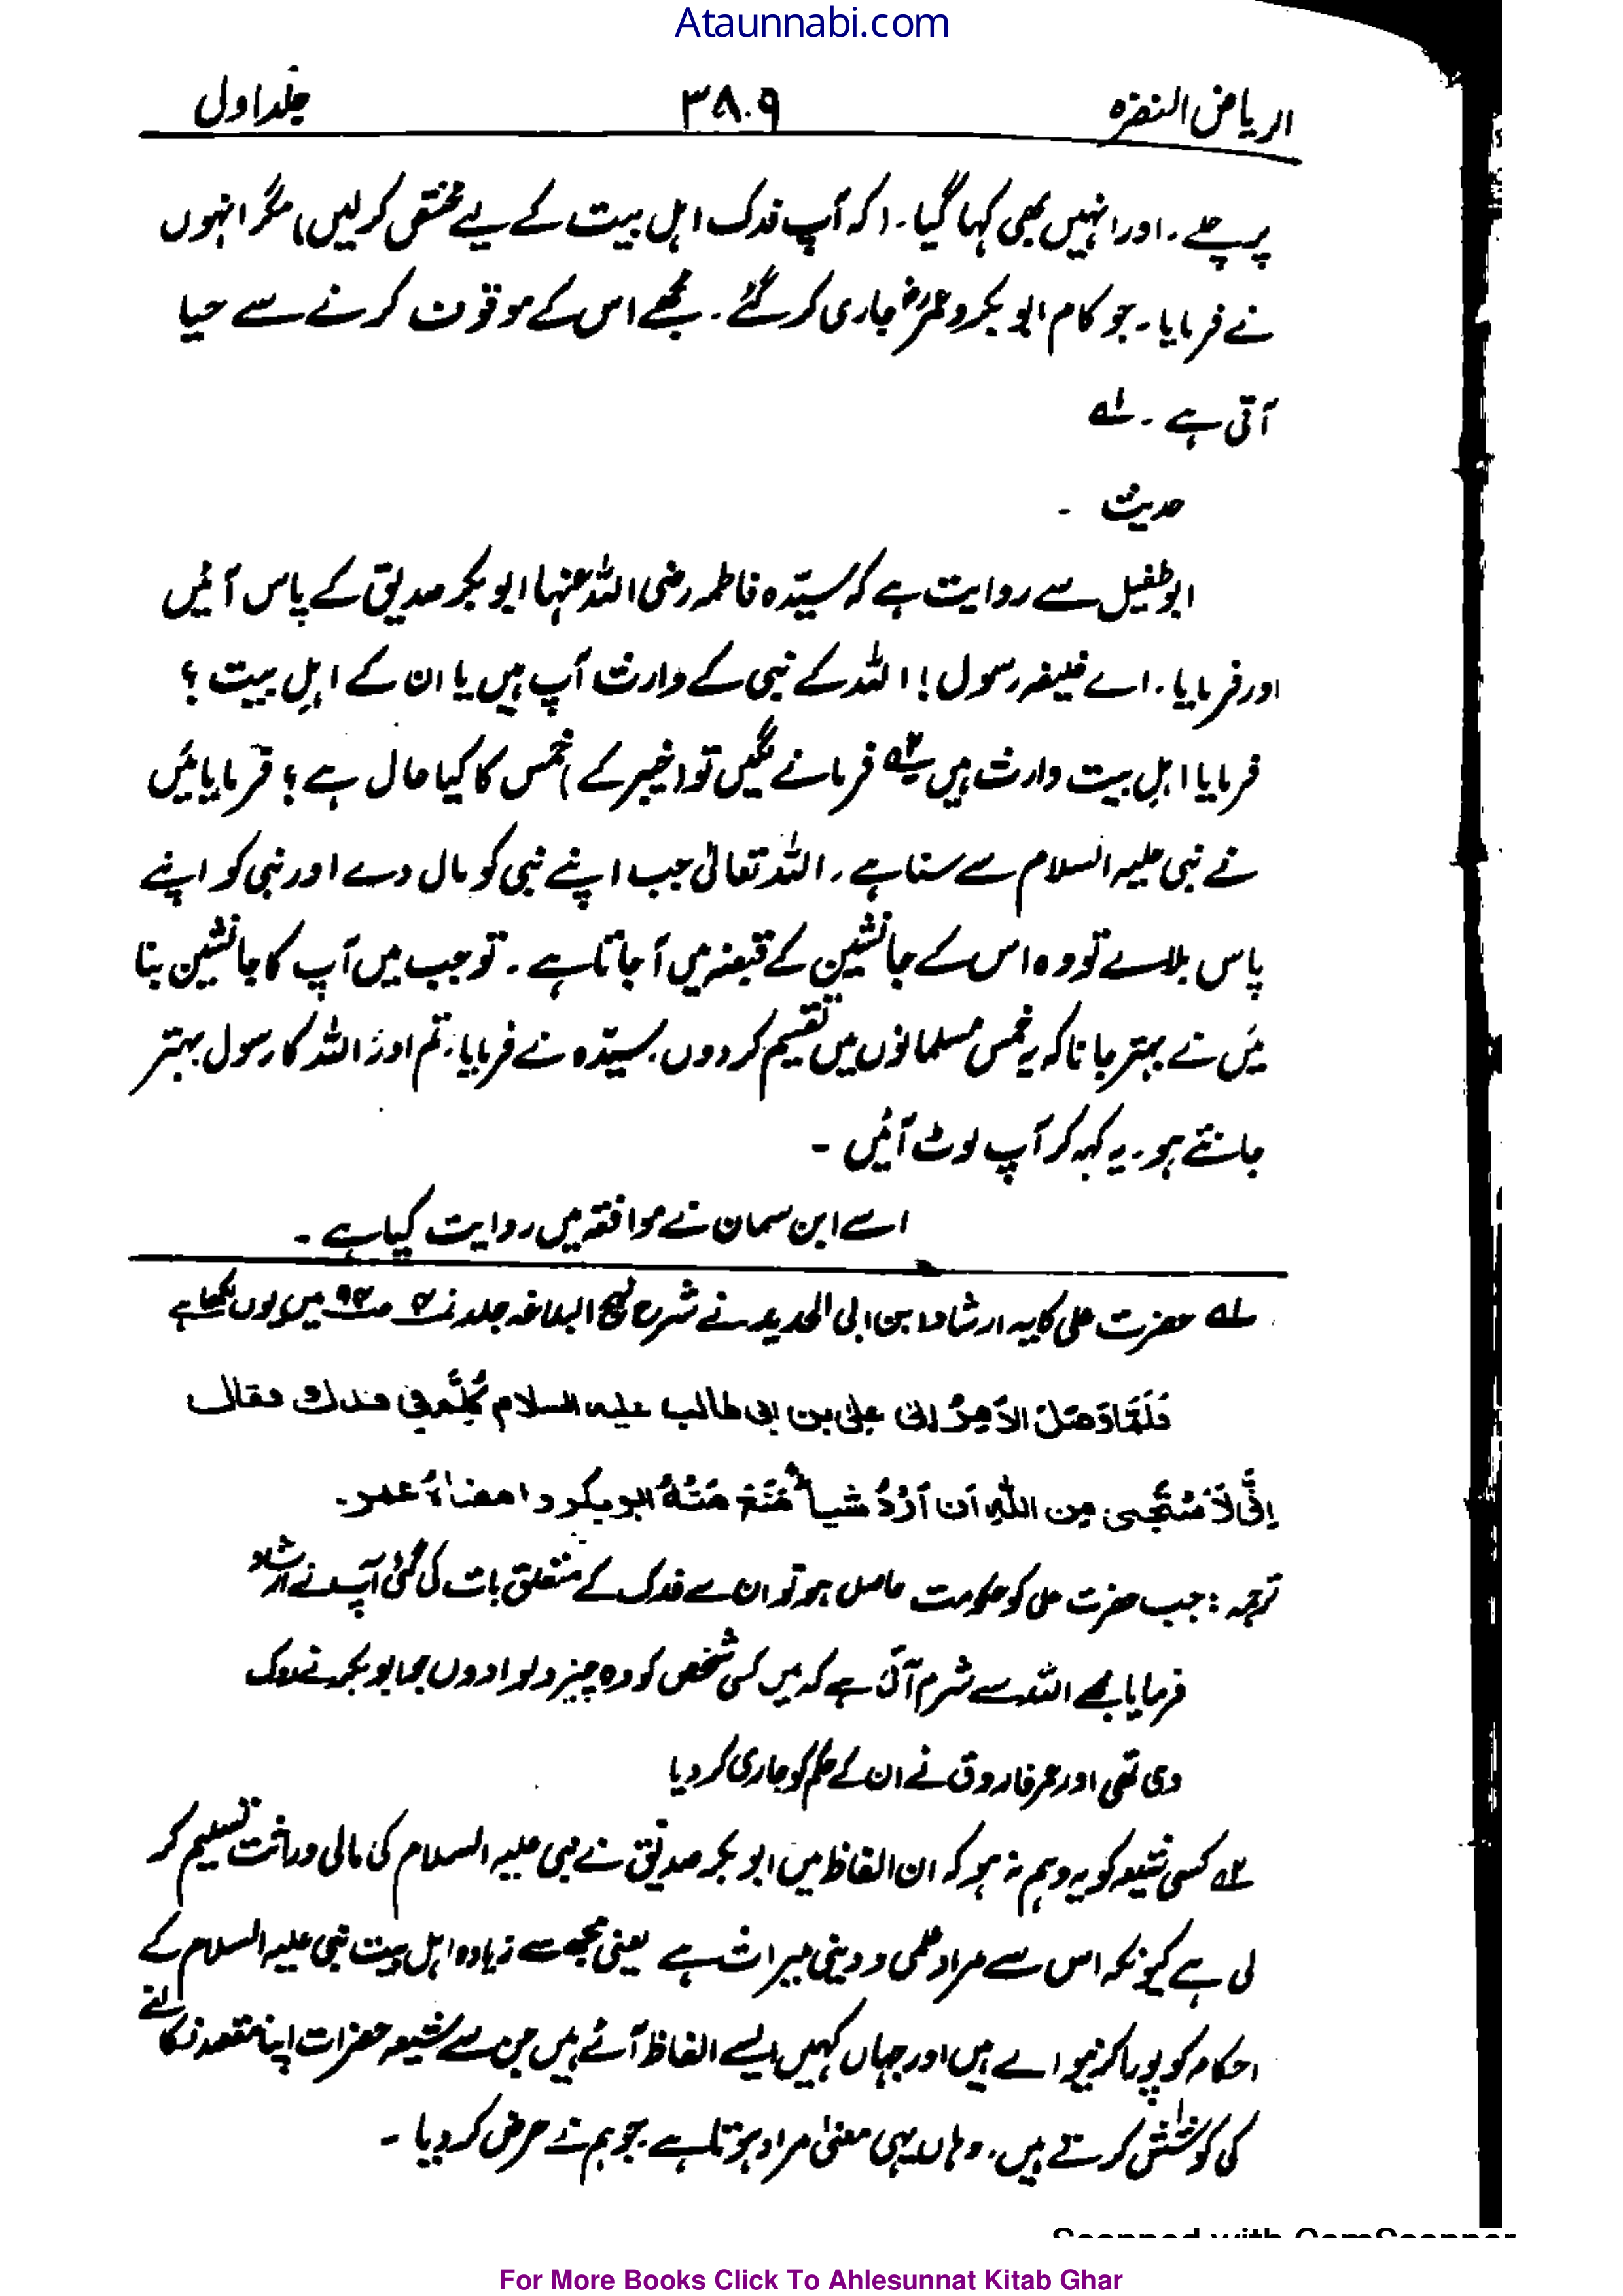 Ataunnabi.com
الریاض النضرہ ۳۸۰۹ جلد اول
پر چلے۔ اور انہیں بھی کہا گیا۔ (کہ آپ فدک اہل بیت کے لیے مختص کر لیں) مگر انہوں
نے فرمایا۔ جو کام ابو بکر و عمرؓ جاری کر گئے۔ مجھے اس کے موقوف کرنے سے حیا
آتی ہے۔ ؎۱
حدیث ۔
ابو طفیل سے روایت ہے کہ سیّدہ فاطمہ رضی اللہ عنہا ابو بکر صدیق کے پاس آئیں
اور فرمایا۔ اے خلیفہ رسول! اللہ کے نبی کے وارث آپ ہیں یا ان کے اہلِ بیت ؟
فرمایا اہلِ بیت وارث ہیں ؎۲ فرمانے لگیں تو (خیبر کے) خمس کا کیا حال ہے؟ فرمایا میَں
نے نبی علیہ السلام سے سنا ہے۔ اللہ تعالیٰ جب اپنے نبی کو مال دے اور نبی کو اپنے
پاس بلالے تو وہ اس کے جانشین کے قبضہ میں آجاتا ہے۔ تو جب میں آپ کا جانشین بنا
میَں نے بہتر جانا کہ یہ خمس مسلمانوں میں تقسیم کر دوں۔ سیّدہ نے فرمایا۔ تم اور اللہ کا رسول بہتر
جانتے ہو۔ یہ کہہ کر آپ لوٹ آئیں ۔
اسے ابن سمان نے موافقہ میں روایت کیا ہے ۔
؎۱ حضرت علی کا یہ ارشاد ابن ابی الحدید نے شرح نہج البلاغہ جلد ۴ ص۹۴ میں یوں لکھا ہے
فَلَمَّا وَصَلَ الاَمرُ اِلیٰ علیّ بن ابی طالب علیہ السلام کُلِّمَ فی فدك فقال
اِنِّی لَاَسْتَحْیِی مِن اللّٰہِ اَن اَرُدَّ شیاً مَنَعَ مَنْہُ ابو بکر و امضاہُ عمر۔
ترجمہ : جب حضرت علی کو حکومت حاصل ہو تو ان سے فدک کے متعلق بات کی گئی آپ نے ارشاد
فرمایا مجھے اللہ سے شرم آتی ہے کہ میں کسی شخص کو وہ چیز دلوا دوں جو ابو بکر نے روک
دی تھی اور عمر فاروق نے ان کے حکم کو جاری کر دیا
؎۲ کسی شیعہ کو یہ وہم نہ ہو کہ ان الفاظ میں ابو بکر صدیق نے نبی علیہ السلام کی مالی وراثت تسلیم کر
لی ہے کیونکہ اس سے مراد علمی و دینی میراث ہے یعنی مجھ سے زیادہ اہل بیت نبی علیہ السلام کے
احکام کو پورا کرنیوالے ہیں اور جہاں کہیں ایسے الفاظ آئے ہیں جن سے شیعہ حضرات اپنا مقصد نکالنے
کی کوشش کرتے ہیں۔ وہاں یہی معنیٰ مراد ہوتا ہے جو ہم نے عرض کر دیا ۔
Scanned with CamScanner
For More Books Click To Ahlesunnat Kitab Ghar